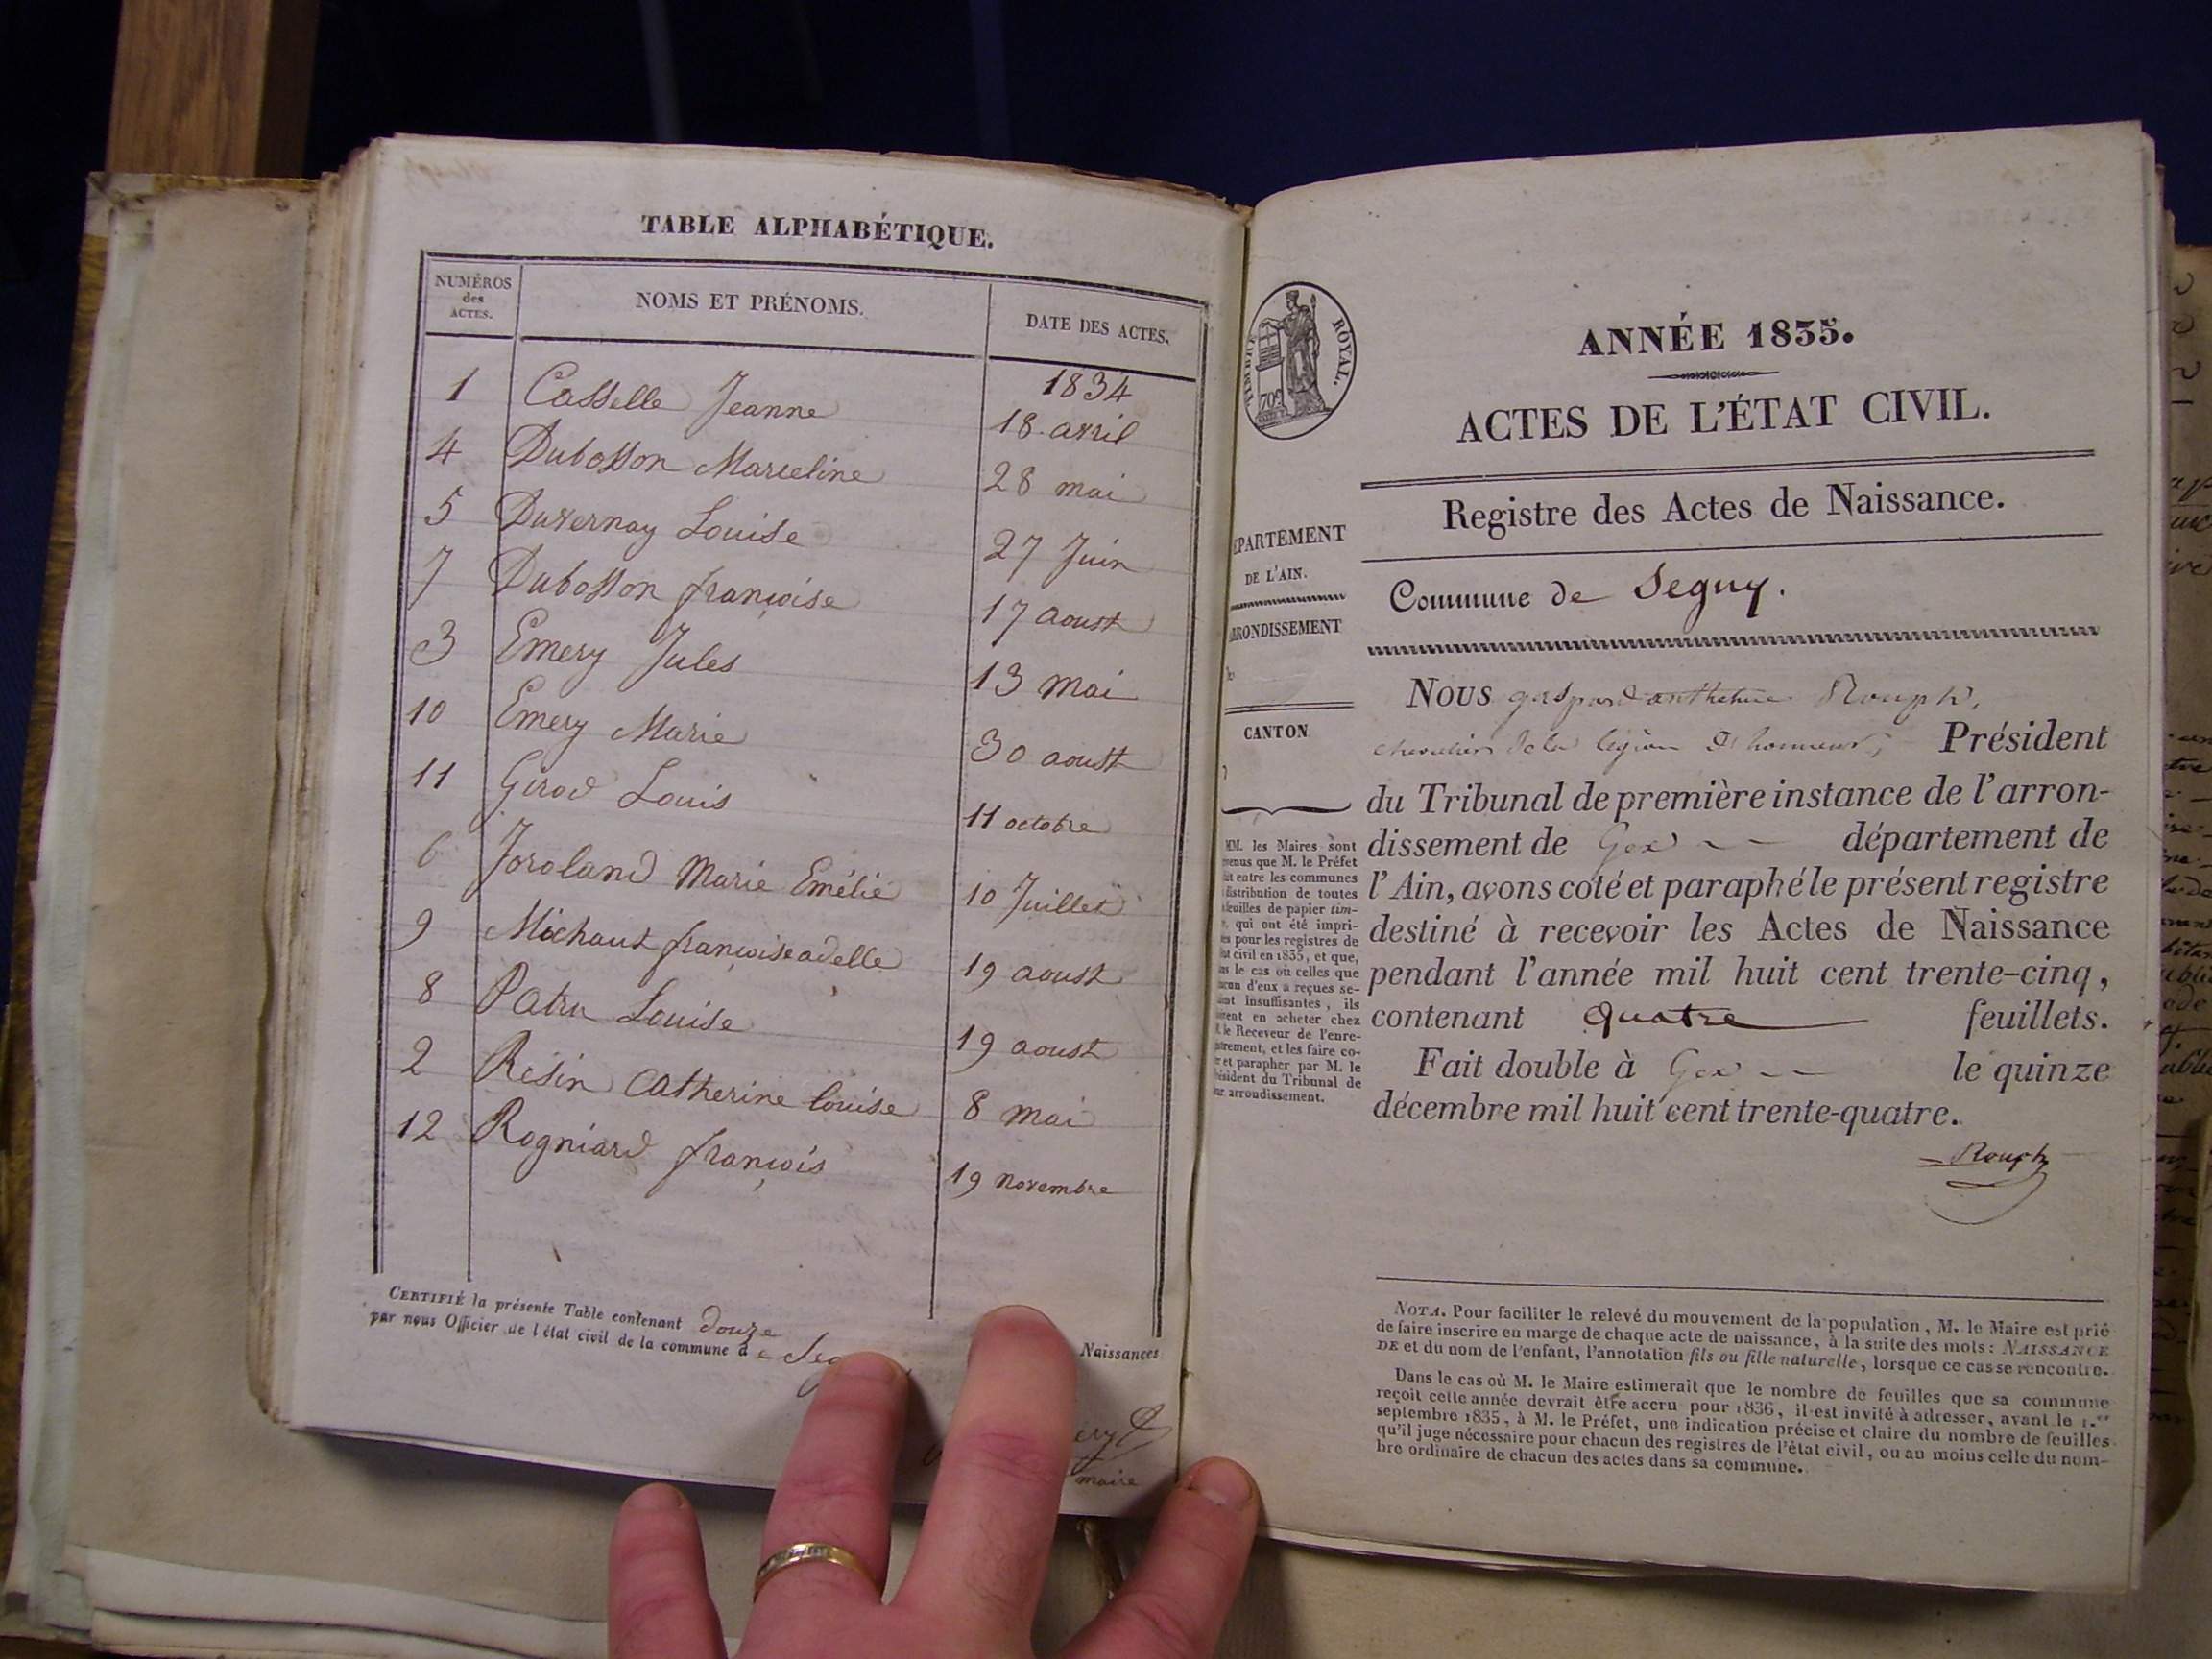 TABLE ALPHABÉTIQUE.
NUMÉROS des ACTES. NOMS ET PRÉNOMS. DATE DES ACTES.
1834
1 Casselle Jeanne 18 avril
4 Dubosson Marceline 28 mai
5 Duvernay Louise 27 Juin
7 Dubosson françoise 17 aoust
3 Emery Jules 13 mai
10 Emery Marie 30 aoust
11 Girod Louis 11 octobre
6 Joroland Marie Emélie 10 Juillet
9 Michaut françoise adelle 19 aoust
8 Patru Louise 19 aoust
2 Résin Catherine louise 8 mai
12 Rogniard françois 19 novembre
CERTIFIÉ la présente Table contenant douze
Naissances
par nous Officier de l'état civil de la commune de
maire
TIMBRE ROYAL.
70c
ANNÉE 1835.
ACTES DE L'ÉTAT CIVIL.
Registre des Actes de Naissance.
DE L'AIN.
CANTON
Commune de Segny.
Nous gaspard anthelme Rouph,
chevalier de la légion d'honneur, Président
du Tribunal de première instance de l'arron-
dissement de Gex département de
l'Ain, avons coté et paraphé le présent registre
destiné à recevoir les Actes de Naissance
pendant l'année mil huit cent trente-cinq,
contenant quatre feuillets.
Fait double à Gex le quinze
décembre mil huit cent trente-quatre.
Rouph
MM. les Maires sont
que M. le Préfet
entre les communes
distribution de toutes
feuilles de papier tim-
qui ont été impri-
pour les registres de
civil en 1835, et que,
le cas où celles que
d'eux a reçues se-
insuffisantes, ils
en acheter chez
le Receveur de l'enre-
et les faire co-
et parapher par M. le
Président du Tribunal de
arrondissement.
NOTA. Pour faciliter le relevé du mouvement de la population, M. le Maire est prié
de faire inscrire en marge de chaque acte de naissance, à la suite des mots: NAISSANCE
DE et du nom de l'enfant, l'annotation fils ou fille naturelle, lorsque ce cas se rencontre.
Dans le cas où M. le Maire estimerait que le nombre de feuilles que sa commune
reçoit cette année devrait être accru pour 1836, il est invité à adresser, avant le 1.er
septembre 1835, à M. le Préfet, une indication précise et claire du nombre de feuilles
qu'il juge nécessaire pour chacun des registres de l'état civil, ou au moins celle du nom-
bre ordinaire de chacun des actes dans sa commune.